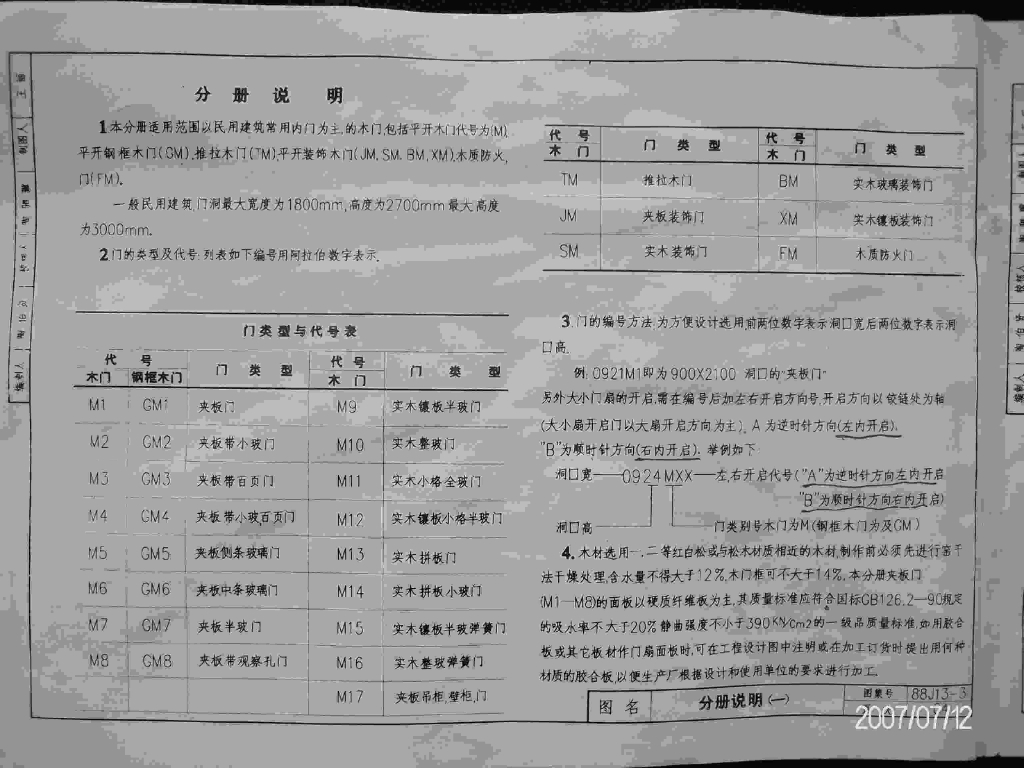 分册说明
1.本分册适用范围以民用建筑常用内门为主的木门,包括平开木门代号为(M),
平开钢框木门(GM).推拉木门(TM)平开装饰木门(JM.SM.BM.XM)木质防火,
门(FM).
一般民用建筑,门洞最大宽度为1800mm,高度为2700mm最大高度
为3000mm.
2门的类型及代号:列表如下编号用阿拉伯数字表示.
门类型与代号表
代号 门类型 代号 门类型
木门 钢框木门 木门
M1 GM1 夹板门 M9 实木镶板半玻门
M2 GM2 夹板带小玻门 M10 实木整玻门
M3 GM3 夹板带百页门 M11 实木小格全玻门
M4 GM4 夹板带小玻百页门 M12 实木镶板小格半玻门
M5 GM5 夹板侧条玻璃门 M13 实木拼板门
M6 GM6 夹板中条玻璃门 M14 实木拼板小玻门
M7 GM7 夹板半玻门 M15 实木镶板半玻弹簧门
M8 GM8 夹板带观察孔门 M16 实木整玻弹簧门
M17 夹板吊柜,壁柜,门
代号 门类型 代号 门类型
木门 木门
TM 推拉木门 BM 实木玻璃装饰门
JM 夹板装饰门 XM 实木镶板装饰门
SM 实木装饰门 FM 木质防火门
3.门的编号方法:为方便设计选用前两位数字表示洞口宽后两位数字表示洞
口高.
例:0921M1即为900X2100 洞口的"夹板门"
另外大小门扇的开启,需在编号后加左右开启方向号,开启方向以铰链处为轴
(大小扇开启门以大扇开启方向为主). A为逆时针方向(左内开启).
"B"为顺时针方向(右内开启). 举例如下:
洞口宽 0924MXX 左,右开启代号("A"为逆时针方向左内开启
"B"为顺时针方向右内开启)
洞口高 门类别号木门为M(钢框木门为及GM)
4.木材选用一.二等红白松或与松木材质相近的木材,制作前必须先进行窑干
法干燥处理,含水量不得大于12%,木门框可不大于14%.本分册夹板门
(M1—M8)的面板以硬质纤维板为主,其质量标准应符合国标GB126.2—90规定
的吸水率不大于20%静曲强度不小于390KN/cm2的一级品质量标准,如用胶合
板或其它板材作门扇面板时,可在工程设计图中注明或在加工订货时提出用何种
材质的胶合板,以便生产厂根据设计和使用单位的要求进行加工.
图名 分册说明(一) 图集号 88J13-3
2007/07/12